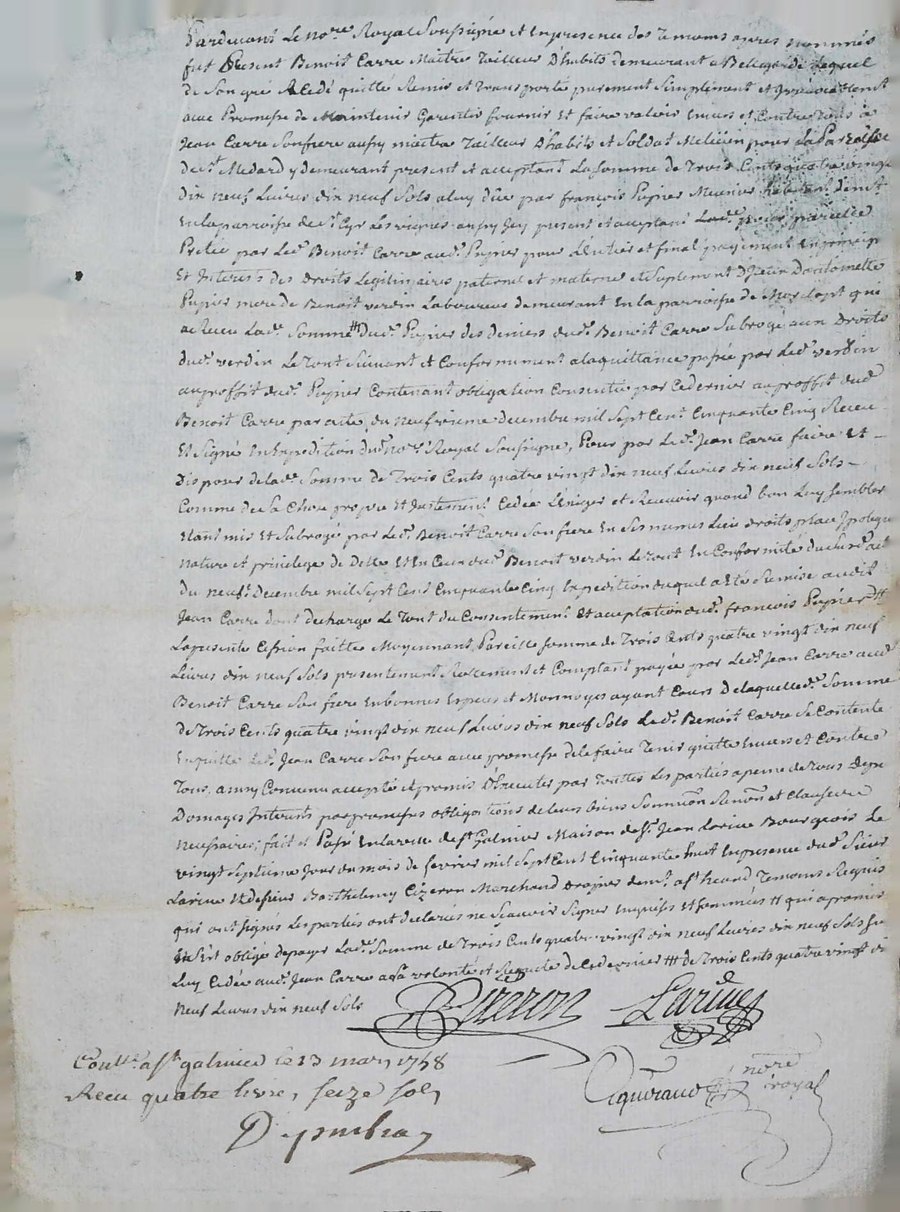 Pardevant Le no.re Royal Soussigné et En presence des Temoins apres nommés
fut Present Benoit Carre Maitre Tailleur D'habits demeurant a Bellegarde Lequel
de Son gré A Cedé quitté Remis et Transporté purement Simplement et Irrevocablement
avec Promesse de Maintenir Garentir fournir Et faire valoir Envers et Contre Tous à
Jean Carre Son frere aussy maitre Tailleur D'habits et Soldat Melicien pour La Paroisse
de S.t Medard y demeurant present et acceptant La Somme de Trois Cents quatre vingt
dix neuf Livres dix neuf Sols a luy düe par françois Pupier Meunier
En La parroisse de S.t Cyr Les vignes aussy Icy present et acceptant Lad.e
Pretée par Led. Benoit Carre aud. Pupier pour L'Entier et final payement En principal
Et Interets des Droits Legitimaires paternel et maternel et Suplement D'Iceux
Pupier mere de Benoit verdin Laboureur demeurant En la parroisse de qui
a Recu Lad.e Somme dud. Pupier des deniers dud. Benoit Carre Subrogé aux Droits
dud. verdin Le Tout Suivant et Conformement a la quittance passée par Led. verdin
au proffit dud. Pupier Contenant obligation Consentie par Ce dernier au proffit dud.
Benoit Carre par acte du neufvieme decembre mil Sept Cent Cinquante Cinq Recu
Et Signé En Expedition dud. no.re Royal Soussigné, Pour par Led. Jean Carre faire Et
Disposer de lad.e Somme de Trois Cents quatre vingt dix neuf Livres dix neuf Sols
Comme de Sa Chose propre Et Justement Cedée L'Exiger et Recevoir quand bon Luy Semblera
Etant mis et Subrogé par Led. Benoit Carre Son frere En Ses mêmes Lieu droits place Ipoteque
nature et privilege de Dette Et En Ceux dud. Benoit verdin Le tout En Conformité du Susd. acte
du neuf.e Decembre mil Sept Cent Cinquante Cinq Expedition duquel a Eté Remise audit
Jean Carre dont decharge Le Tout du Consentement Et acceptation dud. françois Pupier #
La presente Cession faitte Moyennant Pareille Somme de Trois Cents quatre vingt dix neuf
Livres dix neuf Sols presentement Réelement et Comptant payée par Led. Jean Carre aud.
Benoit Carre Son frere En bonnes Especes et Monnoyes ayant Cours De laquelle d.e Somme
de Trois Cents quatre vingt dix neuf Livres dix neuf Sols Led. Benoit Carre Se Contente
En quitte Led. Jean Carre Son frere avec promesse de le faire Tenir quitte Envers et Contre
Tous, ainsy Convenu accepté et promis D'Executer par Touttes Les parties a peine de Tous Depens
Domages Interets par promesses obligations de leurs biens Soumiõn Renõn et Clauses
necessaires; fait et Passé En La ville de S.t Galmier Maison de S.r Jean Larive Bourgeois Le
vingt Septieme Jour du mois de fevrier mil Sept Cent Cinquante huit En presence dud. Sieur
Larive Et de Sieur Barthelemy Cizeron Marchand Drapier dem.t a S.t heand Temoins Requis
qui ont Signés Les parties ont declarées ne Scavoir Signer Enquises Et Sommées # qui a promis
Et S'est obligé de payer Lad.e Somme de Trois Cents quatre-vingt dix neuf Livres dix neuf Sols
Luy Cedée aud. Jean Carre a Sa volonté et Requete de Ce dernier ## de Trois Cents quatre vingt dix
Neuf Livres dix neuf Sols
Cizeron Larive
Contt.é a S.t galmier le 13 mars 1758
Recu quatre livres, seize sols
nore royal